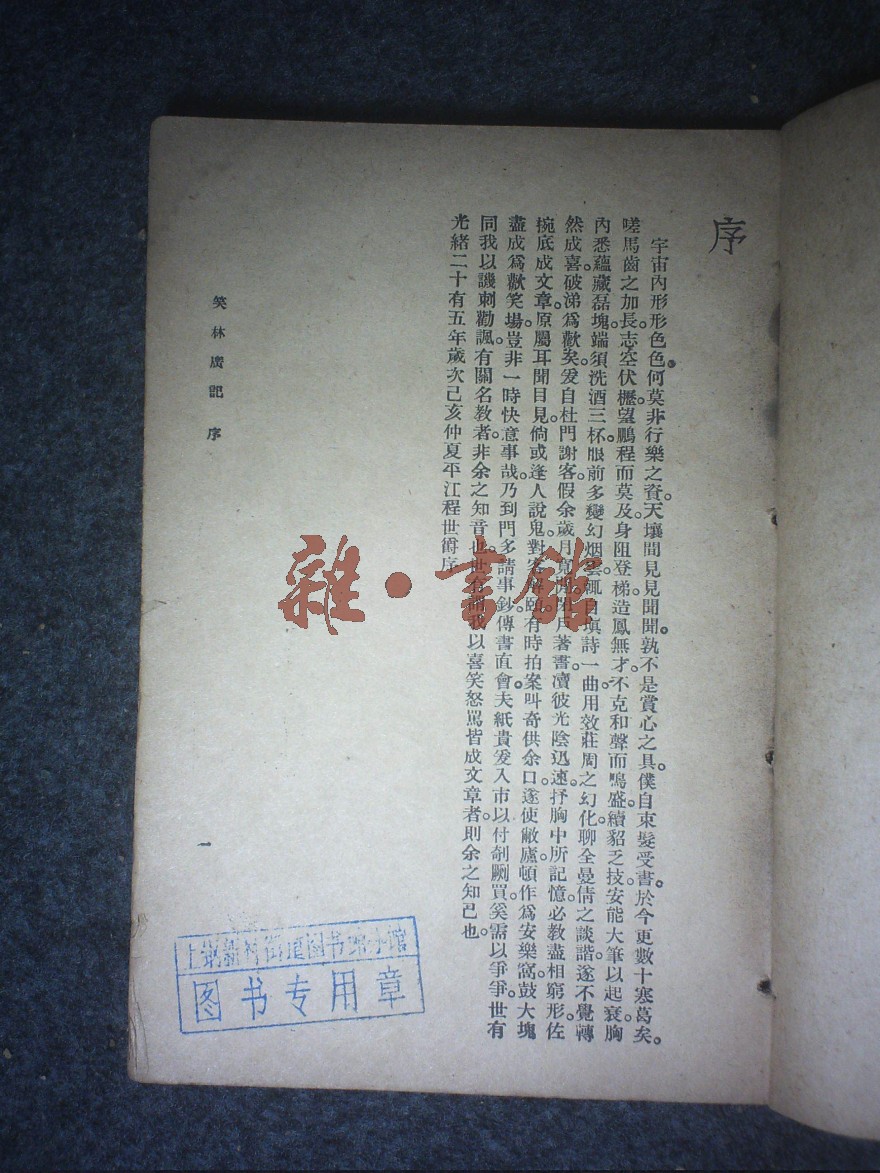 序
宇宙內形形色色。何莫非行樂之資。天壤間見見聞聞。孰不是賞心之具。僕自束髮受書。於今更數十寒葛矣。
嗟馬齒之加長。志空伏櫪。望鵬程而莫及。身阻登梯。造鳳無才。不克和聲而鳴盛。續貂乏技。安能大筆以起衰。胸
內悉蘊藏磊塊。端須洗酒三杯。眼前多變幻烟雲。輒自塡詩一曲。用效莊周之幻化。聊全曼倩之談諧。遂不覺轉
然成喜。破涕爲歡矣。爰自杜門謝客。假余歲月寬閒。閉戶著書。瀆彼光陰迅速。抒胸中所記憶。必敎盡相窮形。佐
捥底成文章。原屬耳聞目見。倘或逢人說鬼。對客解頤。有時拍案叫奇。供余口。遂使敝廬。頓作爲安樂窩。鼓大塊
盡成爲歡笑場。豈非一時快意事哉。乃到門多請事鈔傳。書直會夫紙貴。爰入市以付剞劂。買奚需以爭爭。世有
同我以譏刺勸諷。有關名敎者。非余之知音也。世有
我以喜笑怒罵皆成文章者。則余之知己也。
光緒二十有五年歲次己亥仲夏平江程世爵序
笑林廣記 序
一
雜·書館
上鋼新村街道图书
馆
图书专用章